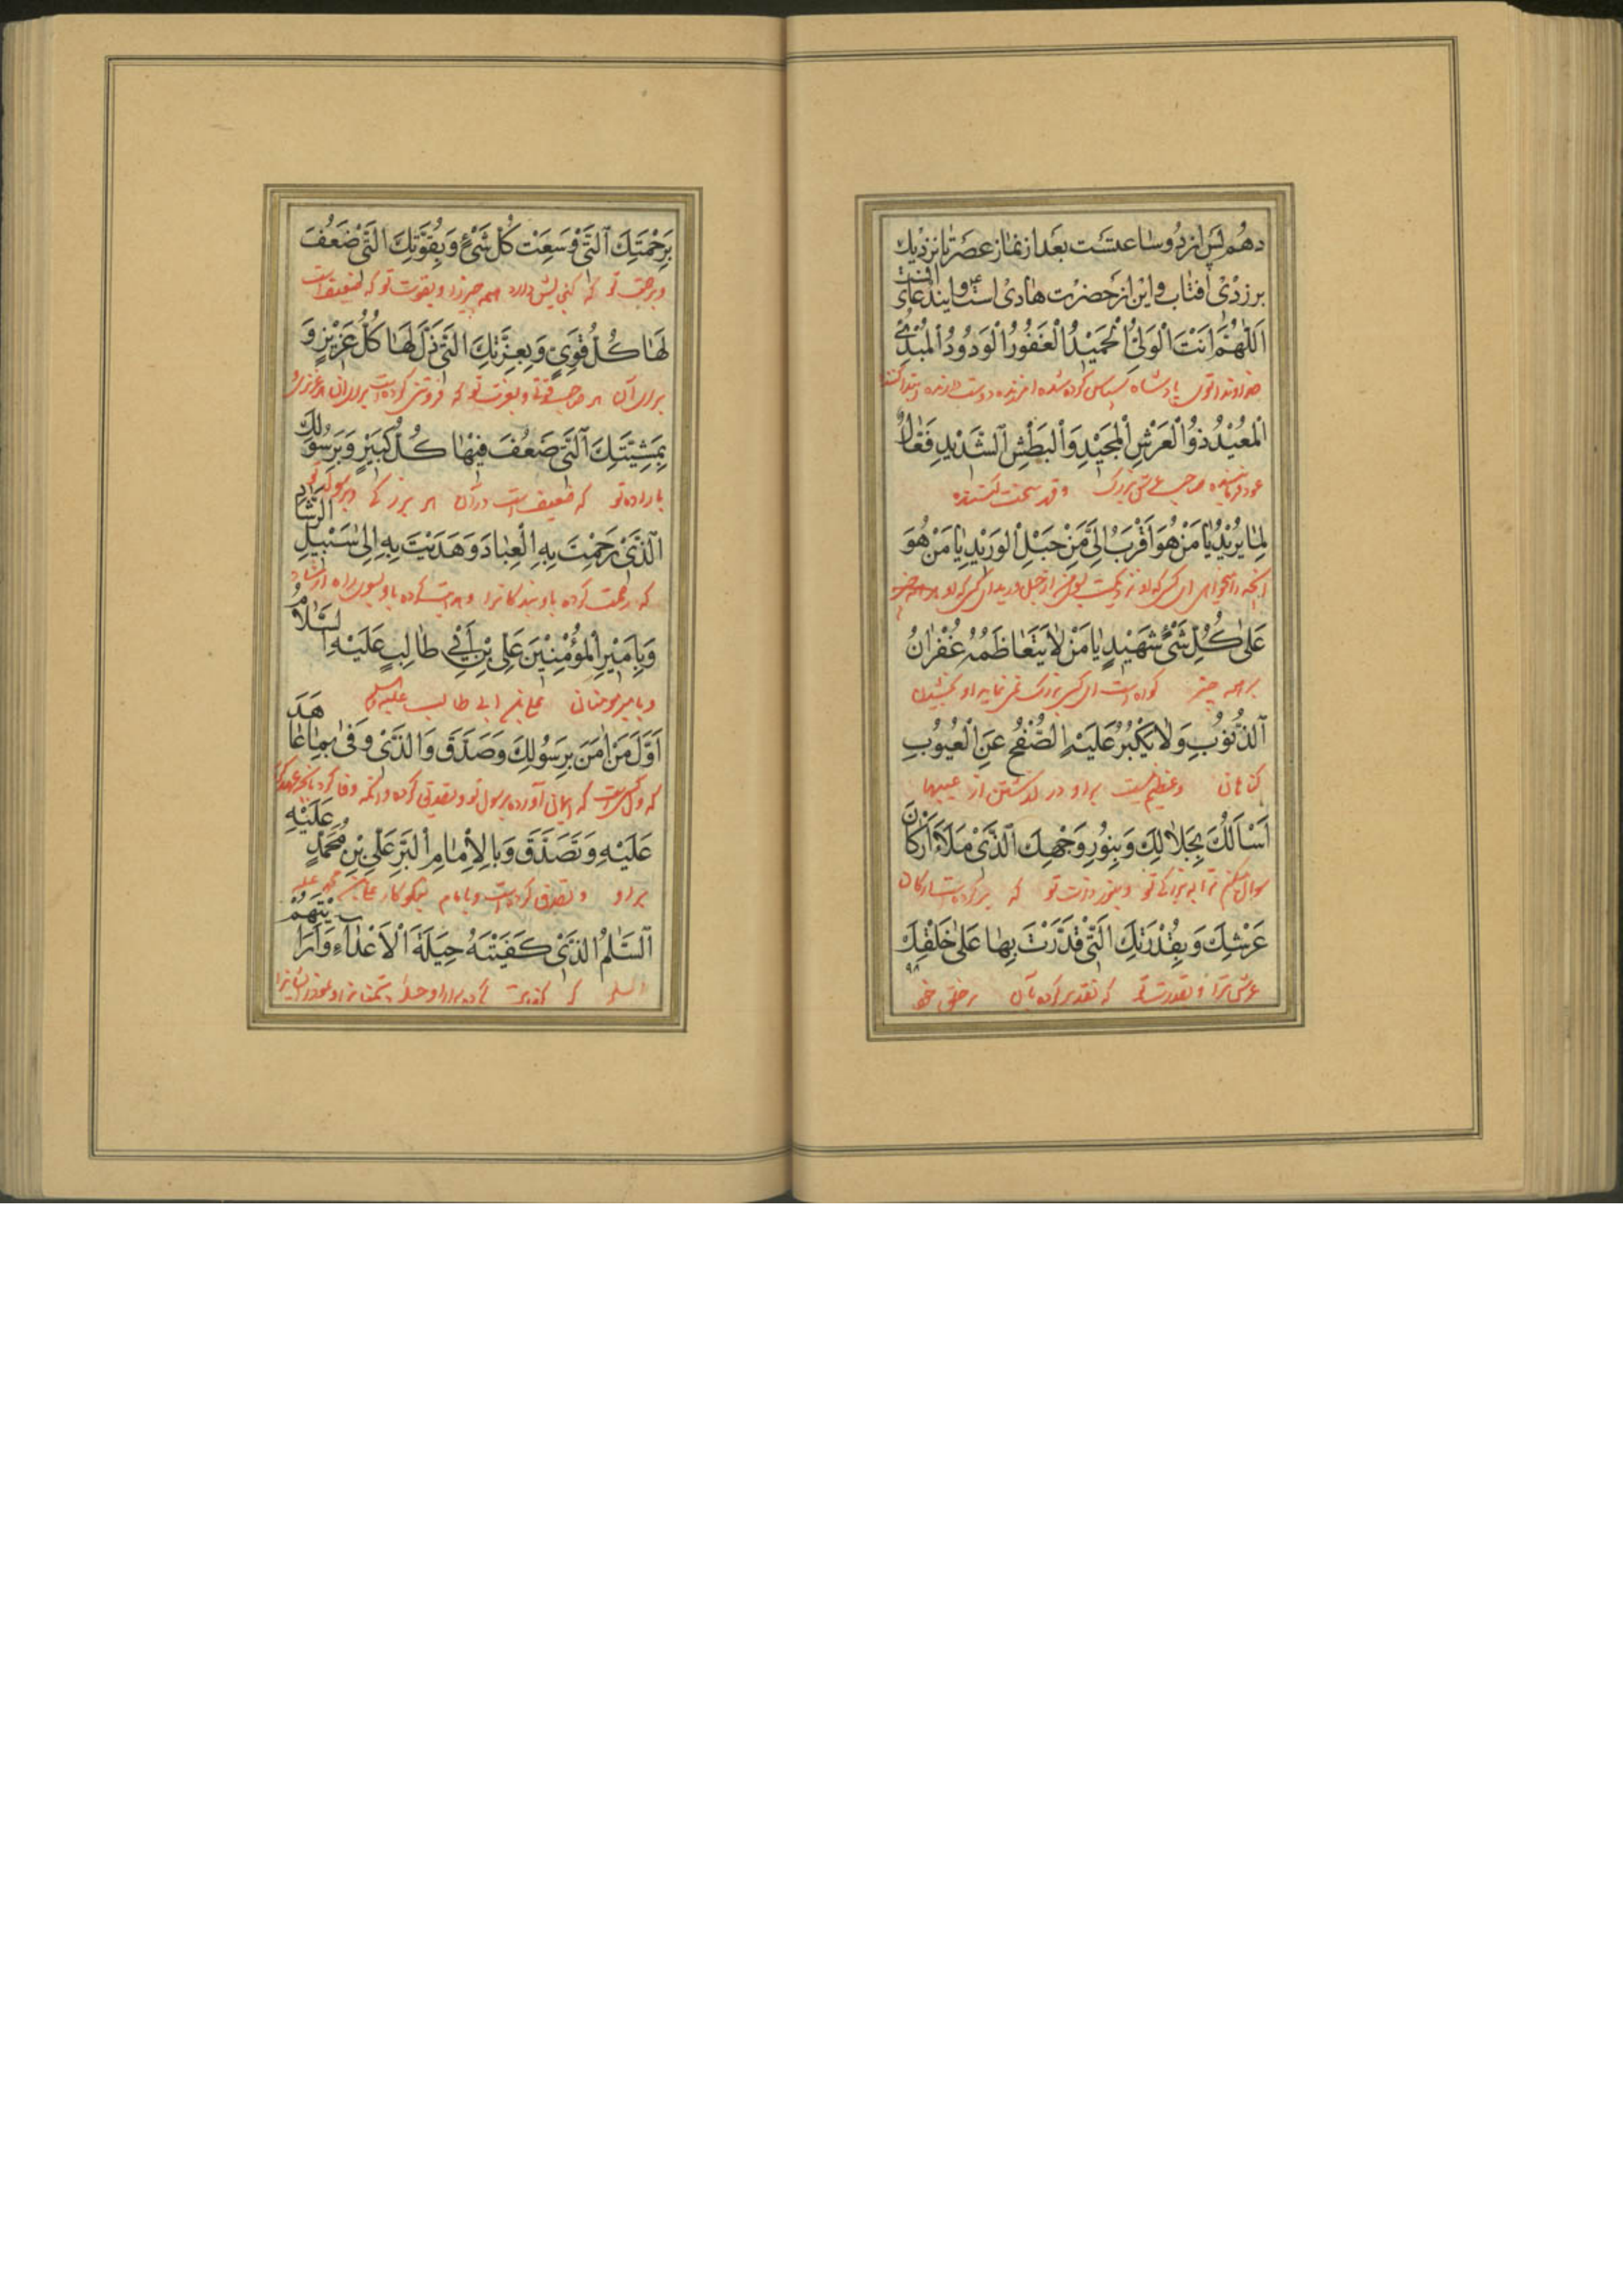 دهم پس از دو ساعتست بعد از نماز عصر تا نزدیك
بزردی افتاب و این از حضرت هادی است و ایندعای افتست
اَللّٰهُمَّ اَنْتَ الْوَلِیُّ الْحَمیْدُ الْغَفُورُ الْوَدُودُ الْمُبْدِئُ
خداوندا توی پادشاه سپاس کرده شده امرزنده دوست دارنده
اَلْمُعیْدُ ذُوالْعَرْشِ الْمَجیْدِ وَالْبَطْشِ الشَّدیْدِ فَعّالٌ
صاحب عرش بزرگ و قهر سخت
لِما یُریْدُ یا مَنْ هُوَ اَقْرَبُ اِلَیَّ مِنْ حَبْلِ الْوَریْدِ یا مَنْ هُوَ
انچه را میخواهی ای کسی که او نزدیکست بمن از حبل ورید ای کسی که او
عَلٰی كُلِّ شَیْءٍ شَهیْدٍ یا مَنْ لا یَتَعاظَمُهُ غُفْرانُ
بر همه چیز گواه است ای کسی بزرگ نمی نماید او بخشیدن
اَلذُّنُوْبِ وَلا یَكْبُرُ عَلَیْهِ الصَّفْحُ عَنِ الْعُیُوبِ
گناهان و عظیم نیست بر او در گذشتن از عیبها
اَسْاَلُكَ بِجَلالِكَ وَبِنُوْرِ وَجْهِكَ الَّذیْ مَلَاَ اَرْكانَ
سوال میکنم ترا به بزرگی تو و بنور ذات تو که پر کرده است ارکان
عَرْشِكَ وَبِقُدْرَتِكَ الَّتیْ قَدَّرْتَ بِها عَلٰی خَلْقِكَ
عرش ترا و بقدرت تو که تقدیر کرده بآن بر خلق خود
۹۸
بِرَحْمَتِكَ الَّتیْ وَسِعَتْ كُلَّ شَیْءٍ وَبِقُوَّتِكَ الَّتیْ ضَعُفَ
و برحمت تو که همه چیز را و بقوت تو که ضعیف است
لَها كُلُّ قَوِیٍّ وَبِعِزَّتِكَ الَّتیْ ذَلَّ لَها كُلُّ عَزیْزٍ وَ
برای آن هر صاحب قوتی و بعزت تو که فروتنی کرده است برای آن هر عزیزی و
بِمَشِیَّتِكَ الَّتیْ ضَعُفَ فیْها كُلُّ كَبیْرٍ وَبِرَسُولِكَ
باراده تو که ضعیف است در آن هر بزرگی و برسول تو
اَلَّذیْ رَحِمْتَ بِهِ الْعِبادَ وَهَدَیْتَ بِهِ اِلٰی سَبیْلِ الرَّشادِ
که رحمت کرده باو بندکانرا و هدایت کرده باو بسوی راه
وَبِاَمیْرِ الْمُؤْمِنیْنَ عَلِیِّ بْنِ اَبیْ طالِبٍ عَلَیْهِ السَّلامُ
و بامیر مومنان علی بن ابی طالب علیه السلام
اَوَّلِ مَنْ اٰمَنَ بِرَسُولِكَ وَصَدَّقَ وَالَّذیْ وَفٰی بِما عاهَدَ
که اول کسی است که ایمان آورده برسول تو و تصدیق کرده و انکه وفا کرد بانچه عهد کرد
عَلَیْهِ وَتَصَدَّقَ وَبِالْاِمامِ الْبَرِّ عَلِیِّ بْنِ مُحَمَّدٍ عَلَیْهِ
بر او و تصدق کرده است و بامام نیکوکار علی بن محمد علیه
اَلسَّلٰمُ الَّذیْ كَفَیْتَهُ حیْلَةَ الْاَعْداءِ وَاَرَیْتَهُمْ
السلام که